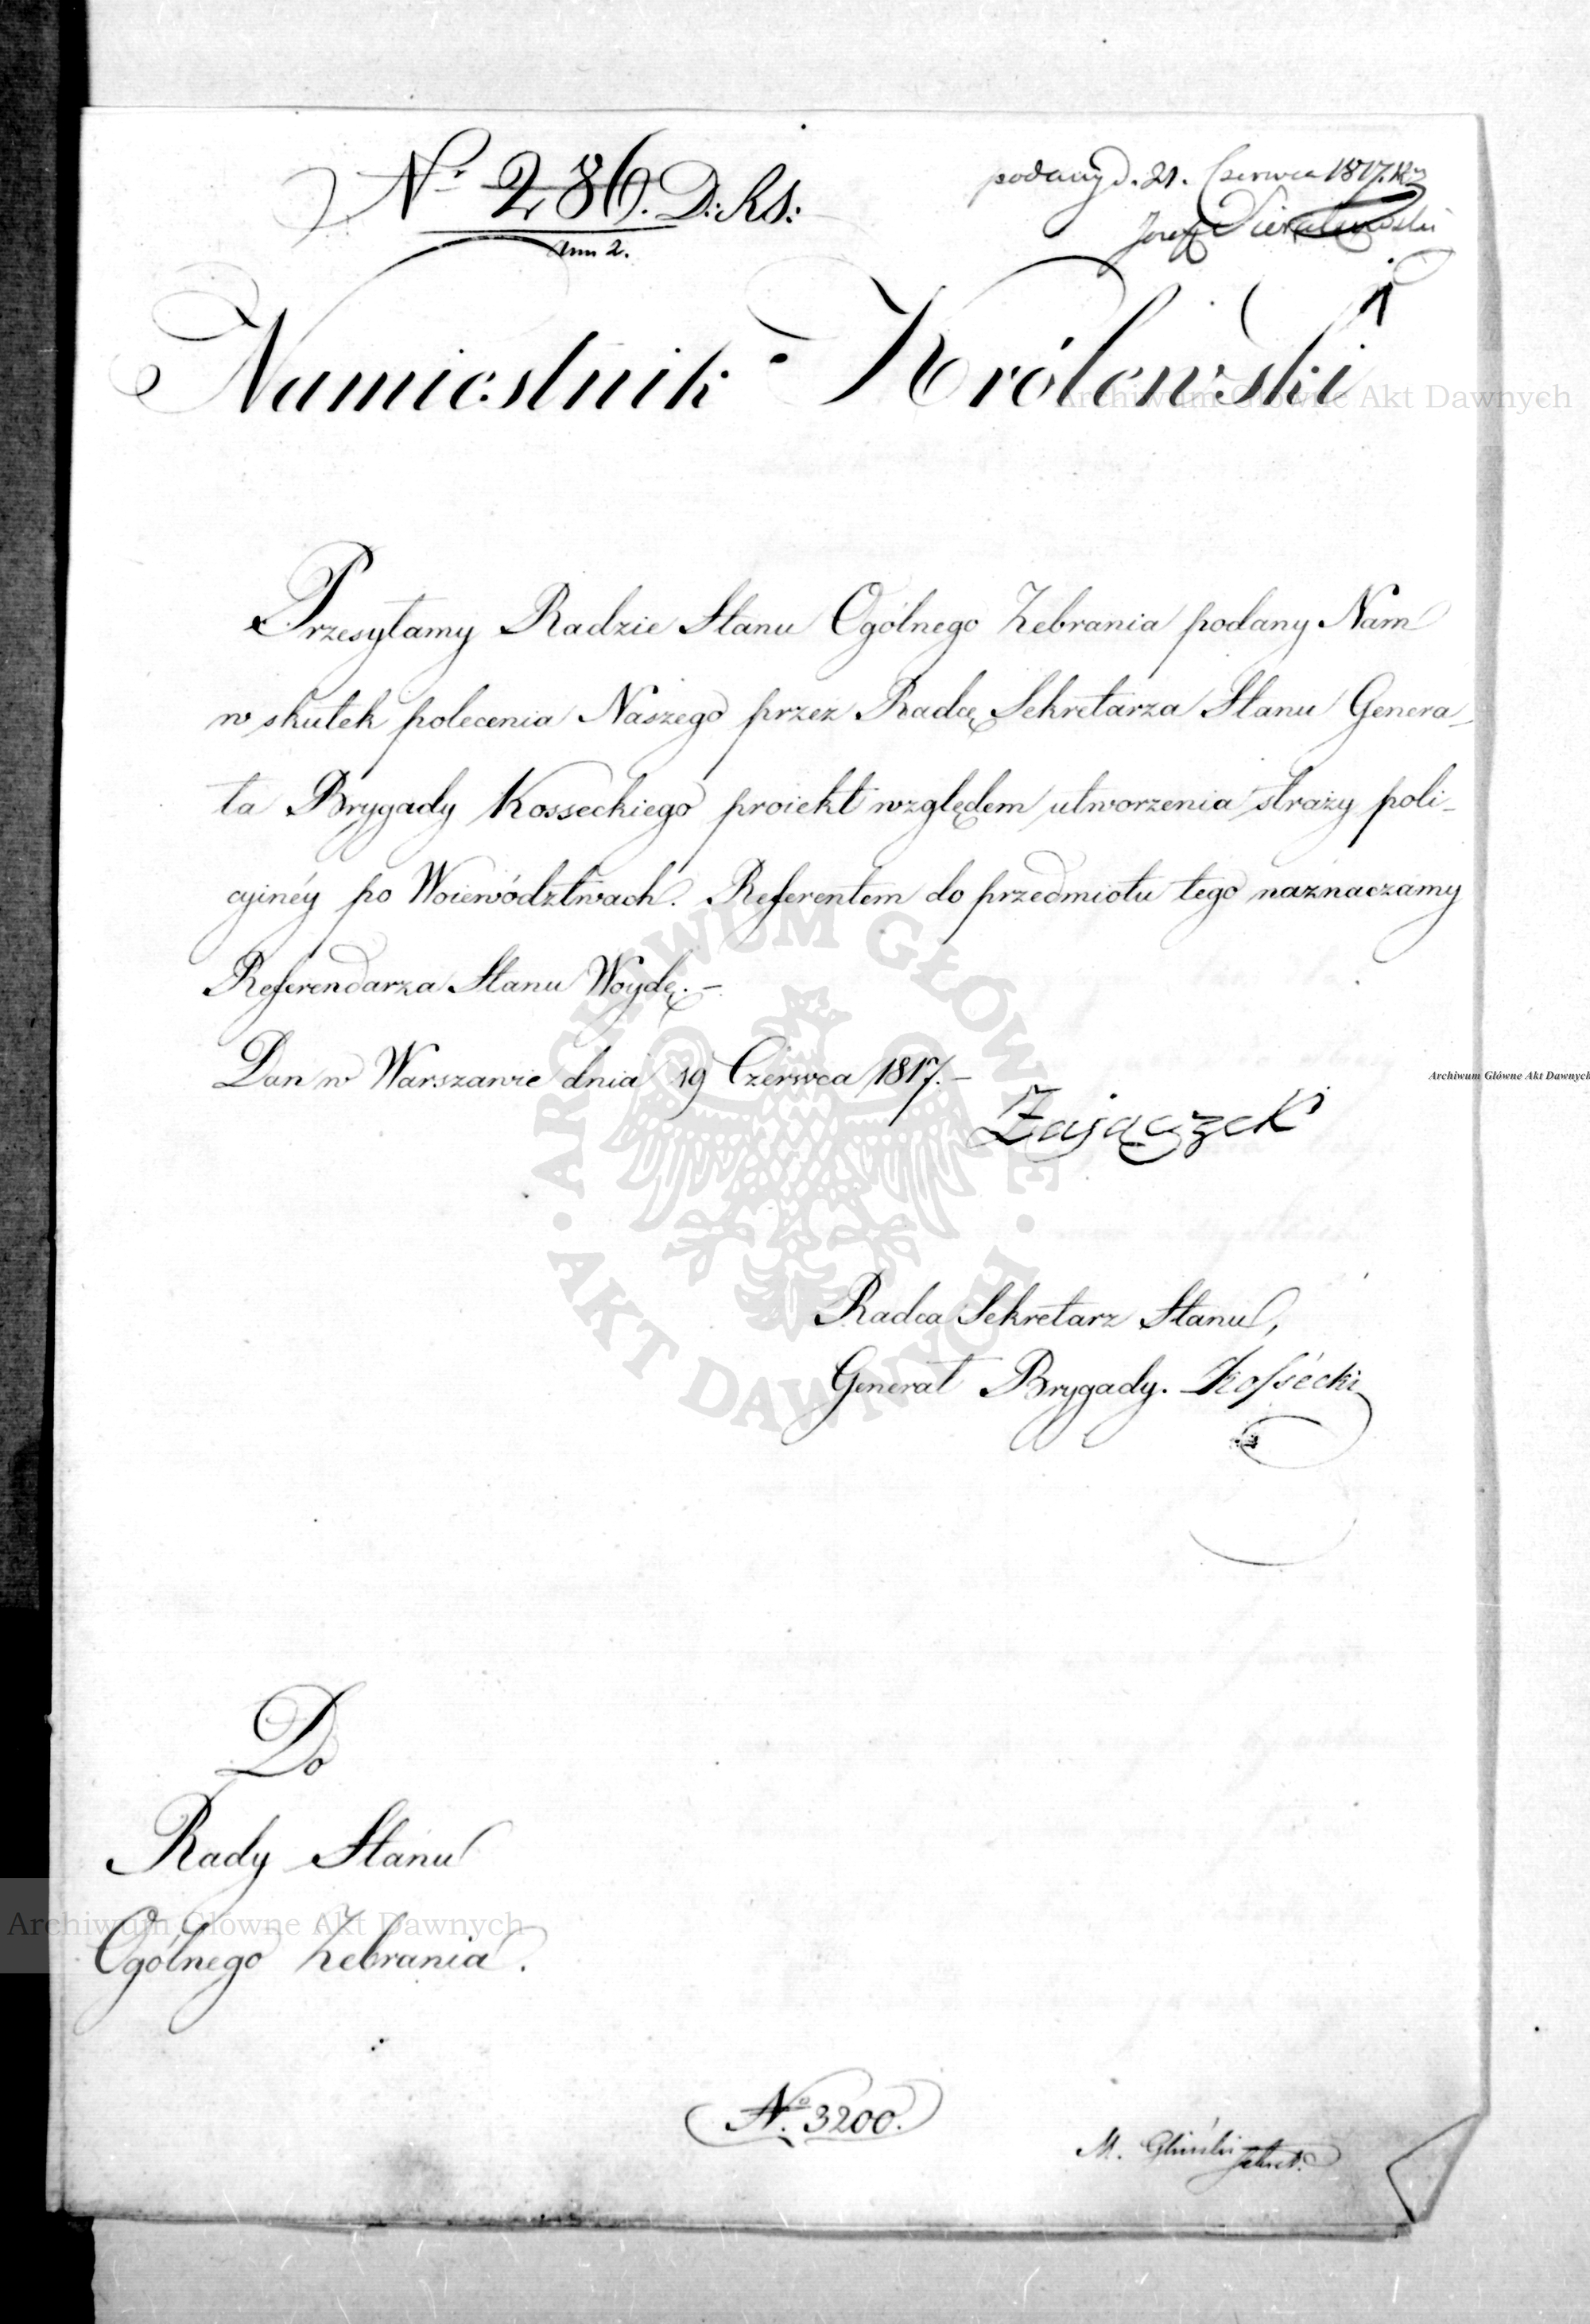 N<sup>o</sup> 286. D: RS:
podany d. 21. Czerwca 1817.
Józef
1
Namiestnik Królewski
Przesyłamy Radzie Stanu Ogólnego Zebrania podany Nam
w skutek polecenia Naszego przez Radcę Sekretarza Stanu Genera-
ła Brygady Kosseckiego proiekt względem utworzenia straży poli-
cyinéy po Woiewództwach. Referentem do przedmiotu tego naznaczamy
Referendarza Stanu Woydę.-
Dan w Warszawie dnia 19 Czerwca 1817.-
Zajączek
Radca Sekretarz Stanu,
Generał Brygady. Kossecki
Do
Rady Stanu
Ogólnego Zebrania.
No. 3200.
M. Gliński Sekret.
Archiwum Główne Akt Dawnych
Archiwum Główne Akt Dawnych
Archiwum Główne Akt Dawnych
ARCHIWUM GŁÓWNE AKT DAWNYCH